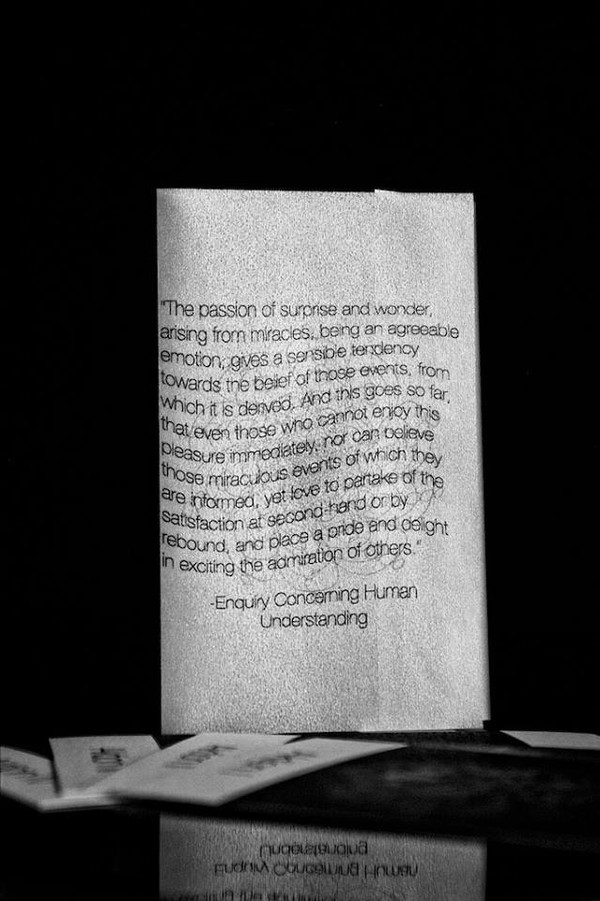 "The passion of surprise and wonder,
arising from miracles, being an agreeable
emotion, gives a sensible tendency
towards the belief of those events, from
which it is derived. And this goes so far,
that even those who cannot enjoy this
pleasure immediately, nor can believe
those miraculous events of which they
are informed, yet love to partake of the
satisfaction at second-hand or by
rebound, and place a pride and delight
in exciting the admiration of others."
-Enquiry Concerning Human
Understanding